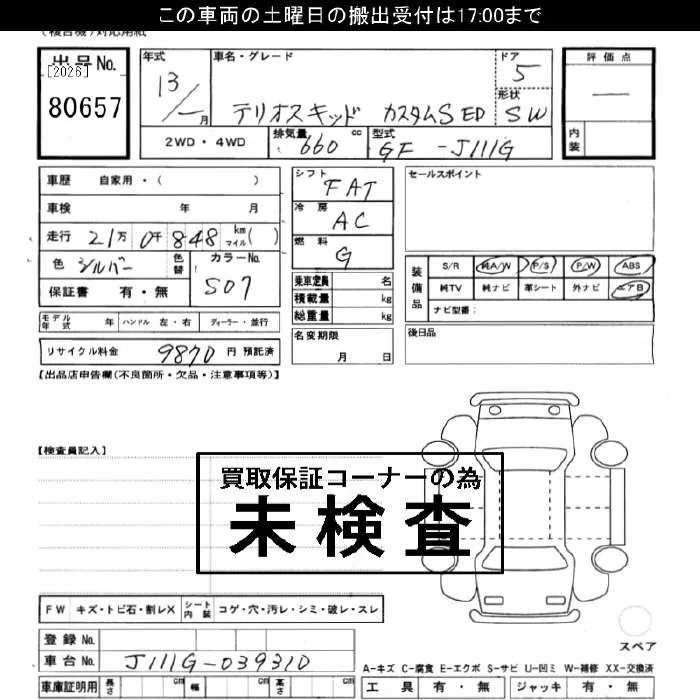 この車両の土曜日の搬出受付は17:00まで
(複合機)対応用紙
出品No.
[2026]
80657
年式
13/一月
車名・グレード
テリオスキッド カスタムS ED
ドア
5
形状
SW
評価点
—
内装
2WD・4WD
排気量 660 cc
型式 GF -J111G
車歴 自家用・( )
車検 年 月
走行 21万 0千 848 km マイル ( )
色 シルバー
色替
カラーNo.
S07
保証書 有・無
シフト
FAT
冷房
AC
燃料
G
乗車定員 名
積載量 kg
総重量 kg
セールスポイント
装備品
S/R 純A/W P/S P/W ABS
純TV 純ナビ 革シート 外ナビ エアB
ナビ型番:
モデル年式 年 ハンドル 左・右 ディーラー・並行
名変期限
月 日
後日品
リサイクル料金 9870 円 預託済
【出品店申告欄(不良箇所・欠品・注意事項等)】
【検査員記入】
買取保証コーナーの為
未検査
FW キズ・トビ石・割レX シート内装 コゲ・穴・汚レ・シミ・破レ・スレ
登録No.
車台No. J111G-039310
スペア
A-キズ C-腐食 E-エクボ S-サビ U-凹ミ W-補修 XX-交換済
車庫証明用 長さ cm 幅 cm 高さ cm
工具 有・無 ジャッキ 有・無